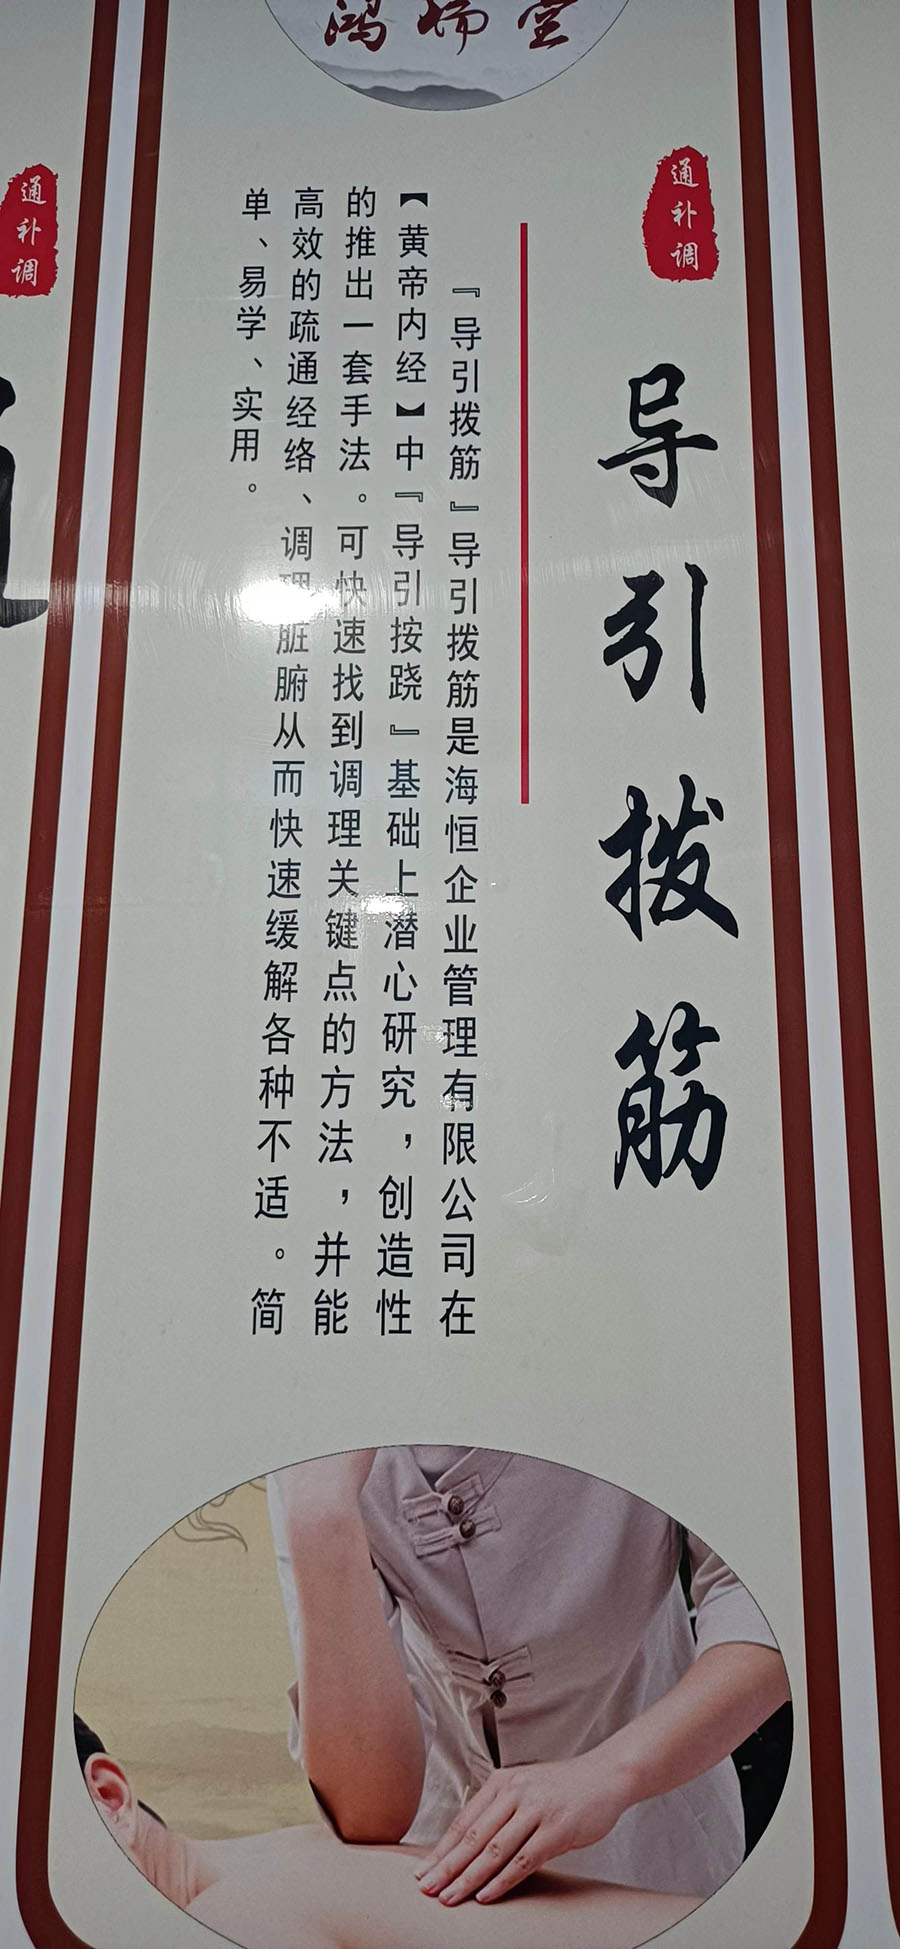 通补调
导引拨筋
『导引拨筋』导引拨筋是海恒企业管理有限公司在
【黄帝内经】中『导引按跷』基础上潜心研究，创造性
的推出一套手法。可快速找到调理关键点的方法，并能
高效的疏通经络、调理脏腑从而快速缓解各种不适。简
单、易学、实用。
通补调